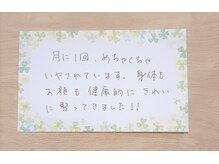 月に1回、めちゃくちゃ
いやされています。身体も
お顔も健康的にきれい
に整ってきました!!